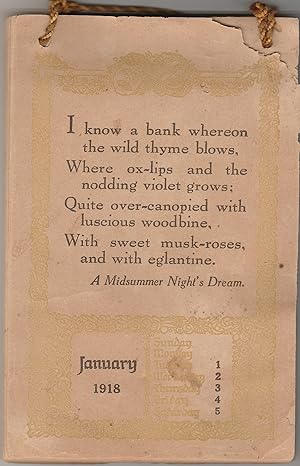 I know a bank whereon
the wild thyme blows,
Where ox-lips and the
nodding violet grows;
Quite over-canopied with
luscious woodbine,
With sweet musk-roses,
and with eglantine.
A Midsummer Night's Dream.
January
1918
Sunday
Monday
1
Wednesday 2
Thursday 3
Friday 4
Saturday 5